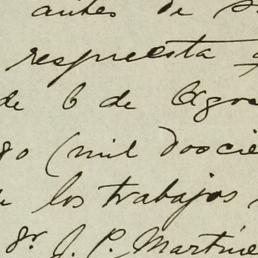 antes de
respuesta
de 6 de Agos
80 (mil doscie
los trabajos
Sr. J. P. Martine